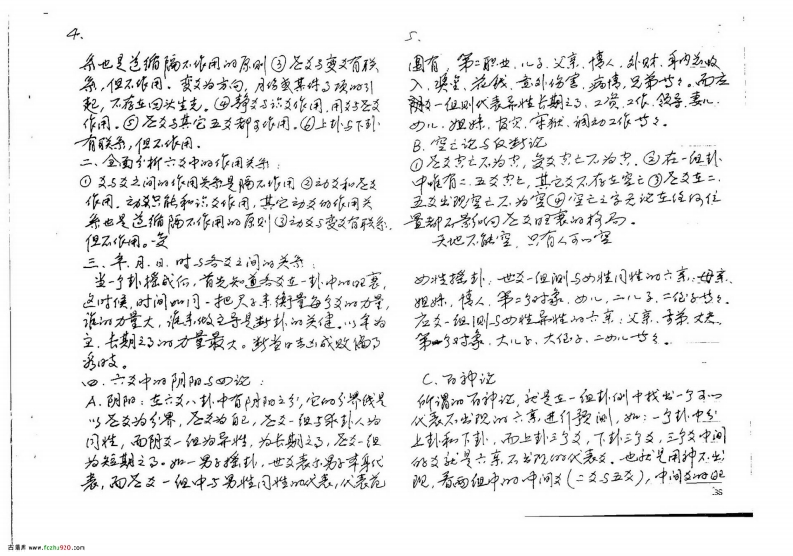 4.
系也是遵循隔不作用的原则③世爻与变爻有联
系，但不作用。变爻为方向，月份或某件事项的引
起，不存在回头生克。④静爻与识爻作用，用爻与世爻
作用。⑤世爻与其它五爻都可作用。⑥上卦与下卦
有联系，但不作用。
二、全面分析六爻中的作用关系：
①爻与爻之间的作用关系是隔不作用②动爻和世爻
作用。动爻只能和识爻作用，其它动爻的作用关
系也是遵循隔不作用的原则③动爻与变爻有联系，
但不作用。
三、年、月、日、时与各爻之间的关系：
当一个卦摇成后，首先知道各爻在一卦中的旺衰，
这时候，时间如同一把尺子来衡量每个爻的力量，
谁的力量大，谁来做主导是断卦的关键。以年为
主，长期之事的力量最大。断当日吉凶成败偏了
四、六爻中的阴阳与四论：
A.阴阳：在六爻八卦中有阴阳之分，它的分界线是
以世爻为分界，世爻为自己，世爻一组与求卦人为
同性，而阴爻一组为异性，为长期之事，世爻一组
为短期之事。如一男子摇卦，世爻表示男子本身代
表，而世爻一组中与男性同性的代表，代表范
5.
围有，第二职业、儿子、父亲、情人、外财、年内总收
入、奖金、花钱、意外伤害、病情、兄弟等等。而应
阴爻一组则代表异性长期之事，工资、工作、领导、妻儿、
女儿、姐妹、官灾、牢狱、调动工作等等。
B.空亡论与反断论
①世爻空亡不为空，变爻空亡不为空。②在一组卦
中唯有二、五爻空亡，其它爻不存在空亡③世爻在二、
五爻出现空亡不为空④空亡之字无论在任何位
置都不影响世爻旺衰的格局。
天地不能空，只有人可以空
女性摇卦：世爻一组测与女性同性的六亲：母亲、
姐妹、情人、第二个对象、女儿、二儿子、二侄子等等。
应爻一组测与女性异性的六亲：父亲、兄弟、丈夫、
第一个对象、大儿子、大侄子、二女儿等等。
C.百神论
所谓的百神论，就是在一组卦例中找出一个可以
代表不出现的六亲进行预测，如：一个卦中分
上卦和下卦，而上卦三个爻，下卦三个爻，三个爻中间
的爻就是六亲不出现的代表爻。也就是用神不出
现，看两组中的中间爻（二爻与五爻），中间爻的旺
36
古籍库 www.fczhu920.com